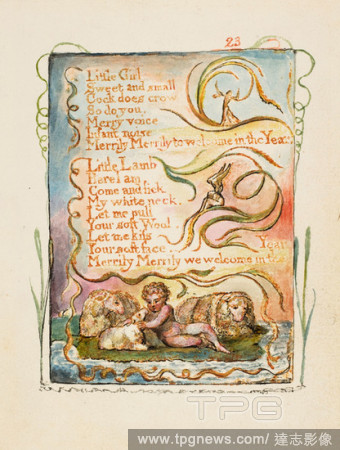 23
Little Girl
Sweet and small
Cock does crow
So do you.
Merry voice
Infant noise
Merrily Merrily to welcome in the Year.
Little Lamb
Here I am,
Come and lick
My white neck.
Let me pull
Your soft Wool.
Let me kiss
Your soft face.
Merrily Merrily we welcome in the Year
TPG
www.tpgnews.com/達志影像